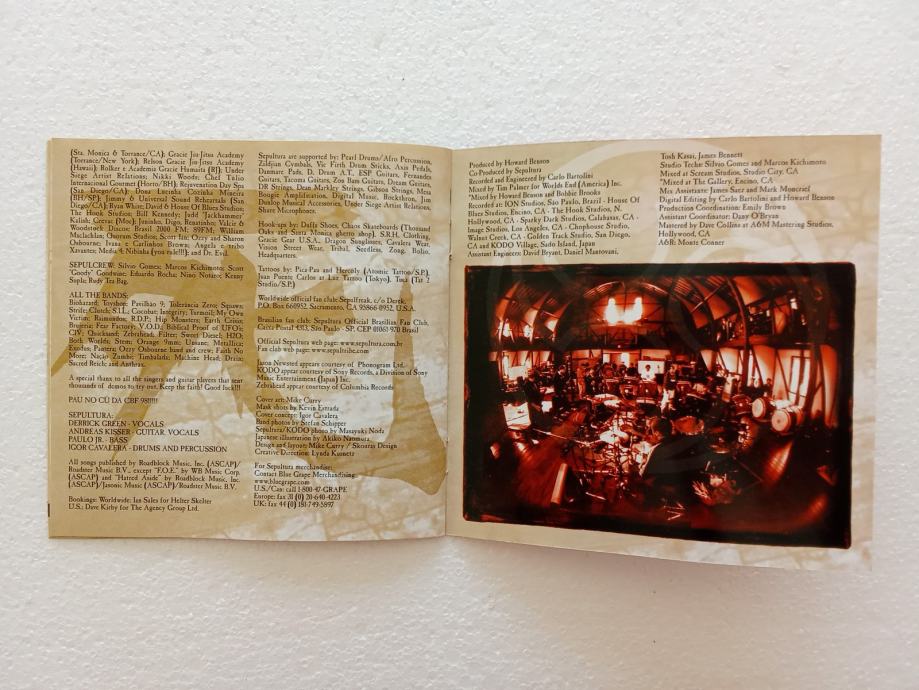 (Sta. Monica & Torrance/CA); Gracie Jiu-Jitsu Academy
(Torrance/New York); Relson Gracie Jiu-Jitsu Academy
(Hawaii); Rolker e Academia Gracie Humaita (RJ); Under
Siege Artist Relations; Nikki Wood; Chef Túlio
Internacional Gourmet (Horto/BH); Rejuvenation Day Spa
(San Diego/CA); Dona Lucinha Cozinha Mineira
(BH/SP); Jimmy & Universal Sound Rehearsals (San
Diego/CA); Ryan White; David & House Of Blues Studios;
The Hook Studio; Bill Kennedy; Judd
Kalish; Greta; (Moo); Juninho, Digo, Renatinho, Valcir &
Woodstock Discos; Brasil 2000 FM; 89FM; William
Maclachlan; Quorum Studios; Scott Ian; Ozzy and Sharon
Osbourne; Ivan e Carlinhos Brown; Angela e tribo
Xavante; Medusa; and Dr. Evil.
SEPULCREW: Silvio Gomes; Marcos Kichimoto; Scott
"Goody" Goodwin; Eduardo Rocha; Nino Notaro; Kenny
Suple; Rudy Tea Bag.
ALL THE BANDS:
Biohazard; Toyshop; Pavilhão 9; Tolerância Zero; Squaws;
Strife; Clutch; S.I.L.; Cocobat; Integrity; Turmoil; My Own
Victim; Raimundos; R.D.P.; Hip Monsters; Earth Crisis;
Brujeria; Fear Factory; V.O.D.; Biblical Proof of UFOs;
CIV; Quicksand; Zebrahead; Filter; Sweet Diesel; H2O;
Both Worlds; Stem; Orange 9mm; Unsane; Metallica;
Exodus; Pantera; Ozzy Osbourne band and crew; Faith No
More; Nação Zumbi; Timbalada; Machine Head; Deriva;
Sacred Reich; and Anthrax.
A special thanx to all the singers and guitar players that sent
thousands of demos to try out. Keep the faith! Good luck!!!
PAU NO CÚ DA CBF 98!!!!!
SEPULTURA:
DERRICK GREEN - VOCALS
ANDREAS KISSER - GUITAR, VOCALS
PAULO JR. - BASS
IGOR CAVALERA - DRUMS AND PERCUSSION
All songs published by Roadblock Music, Inc. (ASCAP)/
Roadster Music B.V., except "F.O.E." by WB Music Corp.
(ASCAP) and "Hatred Aside" by Roadblock Music, Inc.
(ASCAP)/Jasonic Music (ASCAP)/Roadster Music B.V.
Bookings: Worldwide: Ian Sales for Helter Skelter
U.S.: Dave Kirby for The Agency Group Ltd.
Sepultura are supported by: Pearl Drums/Afro Percussion,
Zildjian Cymbals, Vic Firth Drum Sticks, Axis Pedals,
Danmarr Pads, D. Drum A.T., ESP Guitars, Fernandes
Guitars, Tacoma Guitars, Zon Bass Guitars, Dream Guitars,
DR Strings, Dean Markley Strings, Gibson Strings, Mesa
Boogie Amplification, Digital Music, Rocktron, Jim
Dunlop Musical Accessories, Under Siege Artist Relations,
Shure Microphones.
Hook-ups by: Duffs Shoes, Chaos Skateboards (Thousand
Oaks and Santa Monica ghetto shop), S.R.H. Clothing,
Gracie Gear U.S.A., Dragon Sunglasses, Cavalera Wear,
Vision Street Wear, Tribal, Seedless, Zong, Bolio,
Headquarters.
Tattoos by: Pica-Pau and Hercoly (Atomic Tattoo/S.P.),
Juan Puente Carlos at Luz Tattoo (Tokyo), Tuca (Tat 2
Studio/S.P.)
Worldwide official fan club: Sepulfreak, c/o Derek,
P.O. Box 660952, Sacramento, CA 95866-0952, U.S.A.
Brazilian fan club: Sepultura Official Brasilian Fan Club,
Caixa Postal 4313, São Paulo - SP, CEP 01061-970 Brasil
Official Sepultura web page: www.sepultura.com.br
Fan club web page: www.sepultribe.com
Jason Newsted appears courtesy of Phonogram Ltd.
KODO appear courtesy of Sony Records, a Division of Sony
Music Entertainment (Japan) Inc.
Zebrahead appear courtesy of Columbia Records
Cover art: Mike Curry
Mask shots by Kevin Estrada
Cover concept: Igor Cavalera
Band photos by Stefan Schipper
Sepultura/KODO photo by Masayuki Noda
Japanese illustration by Akiko Naomura
Design and layout: Mike Curry / Skouras Design
Creative Direction: Lynda Kusnetz
For Sepultura merchandise:
Contact Blue Grape Merchandising
www.bluegrape.com
U.S./Can: call 1-800-47-GRAPE
Europe: fax 31 (0) 20-640-4223
UK: fax 44 (0) 181-749-5897
Produced by Howard Benson
Co-Produced by Sepultura
Recorded and Engineered by Carlo Bartolini
Mixed by Tim Palmer for Worlds End (America) Inc.
*Mixed by Howard Benson and Bobbie Brooks
Recorded at: ION Studios, São Paulo, Brazil - House Of
Blues Studios, Encino, CA - The Hook Studios, N.
Hollywood, CA - Sparky Dark Studios, Calabasas, CA -
Image Studios, Los Angeles, CA - Chophouse Studio,
Walnut Creek, CA - Golden Track Studio, San Diego,
CA and KODO Village, Sado Island, Japan
Assistant Engineers: David Bryant, Daniel Mantovani,
Tosh Kasai, James Bennett
Studio Techs: Silvio Gomes and Marcos Kichimoto
Mixed at Scream Studios, Studio City, CA
*Mixed at The Gallery, Encino, CA
Mix Assistants: James Saez and Mark Moncrief
Digital Editing by Carlo Bartolini and Howard Benson
Production Coordination: Emily Brown
Assistant Coordinator: Dany O'Bryan
Mastered by Dave Collins at A&M Mastering Studios,
Hollywood, CA
A&R: Monte Conner